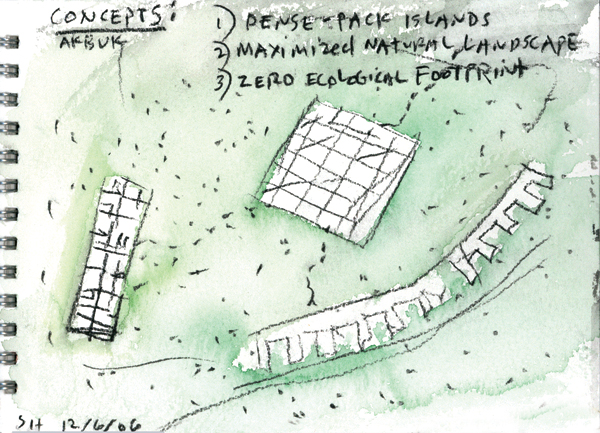 CONCEPTS:
AKBUK
1) DENSE-PACK ISLANDS
2) MAXIMIZED NATURAL LANDSCAPE
3) ZERO ECOLOGICAL FOOTPRINT
SH 12/6/06